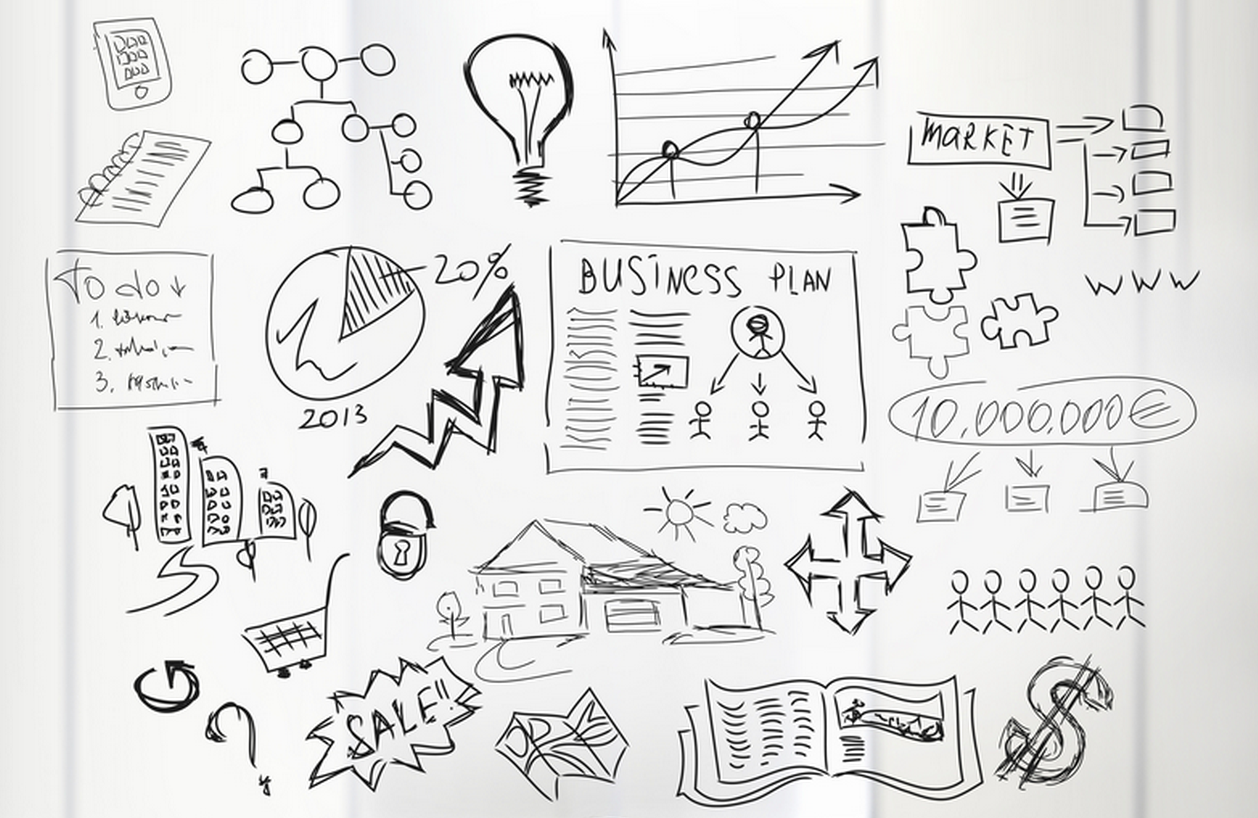 MARKET
To do
1.
2.
3.
20%
2013
BUSINESS PLAN
WWW
10.000.000€
SALE!!
?
$